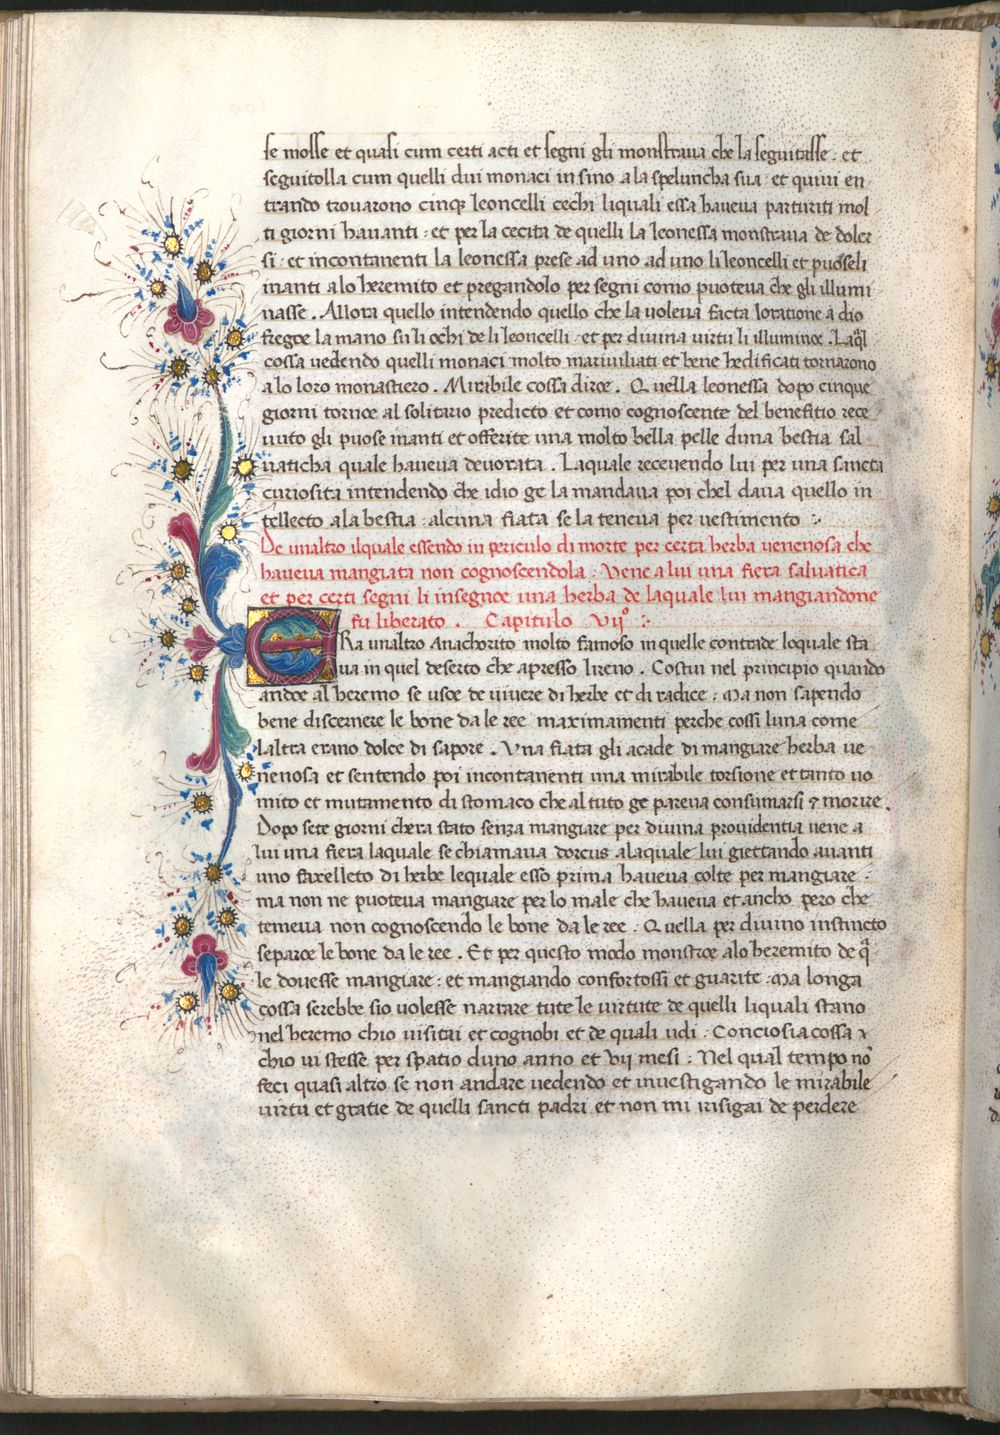 se mosse et quasi cum certi acti et segni gli monstraua che la seguitasse · et
seguitolla cum quelli dui monaci in sino a la speluncha sua · et quiui en
trando trouarono cinq; leoncelli cechi liquali essa haueua parturiti mol
ti giorni hauanti · et per la cecita de quelli la leonessa monstraua de doler
si · et incontanenti la leonessa prese ad uno ad uno li leoncelli et puoseli
inanti alo heremito et pregandolo per segni como puoteua che gli illumi
nasse . Allora quello intendendo quello che la voleua facta loratione a dio
fregoe la mano su li ochi de li leoncelli · et per diuina virtu li illuminoe . Laql̄
cossa uedendo quelli monaci molto mariuiliati et bene hedificati tornarono
a lo loro monastiero . Mirabile cossa diroe . Quella leonessa dopo cinque
giorni tornoe al solitario predicto et como cognoscente del benefitio rece
uuto gli puose inanti et offerite una molto bella pelle duna bestia sal
uaticha quale haueua deuorata . Laquale receuendo lui per una sancta
curiosita intendendo che idio ge la mandaua poi chel daua quello in
tellecto a la bestia : alcuna fiata se la teneua per uestimento :·
De unaltro ilquale essendo in periculo di morte per certa herba uenenosa che
haueua mangiata non cognoscendola : Vene a lui una fiera saluatica
et per certi segni li insegnoe una herba de laquale lui mangiandone
fu liberato . Capitulo Vijº :·
ERa unaltro Anachorito molto famoso in quelle contrade loquale sta
ua in quel deserto che apresso lireno . Costui nel principio quando
andoe al heremo se usoe de uiuere di herbe et di radice : Ma non sapendo
bene discernere le bone da le ree maximamenti perche cossi luna come
laltra erano dolce di sapore . Vna fiata gli acade di mangiare herba ue
nenosa et sentendo poi incontanenti una mirabile torsione et tanto uo
mito et mutamento di stomaco che al tuto ge pareua consumarsi & morire .
Dopo sete giorni chera stato senza mangiare per diuina prouidentia uene a
lui una fiera laquale se chiamaua dorcus a laquale lui giettando auanti
uno faxelleto di herbe lequale esso prima haueua colte per mangiare :
ma non ne puoteua mangiare per lo male che haueua et ancho pero che
temeua non cognoscendo le bone da le ree : Quella per diuino instincto
separoe le bone da le ree . Et per questo modo monstroe alo heremito de q̄
le douesse mangiare : et mangiando confortossi et guarite : Ma longa
cossa serebbe sio uolesse narrare tute le virtute de quelli liquali stano
nel heremo chio uisitai et cognobi et de quali udi : Conciosia cossa
chio ui stesse per spatio duno anno et vij mesi : Nel qual tempo nō
feci quasi altro se non andare uedendo et inuestigando le mirabile
virtu et gratie de quelli sancti padri et non mi irisigai de perdere